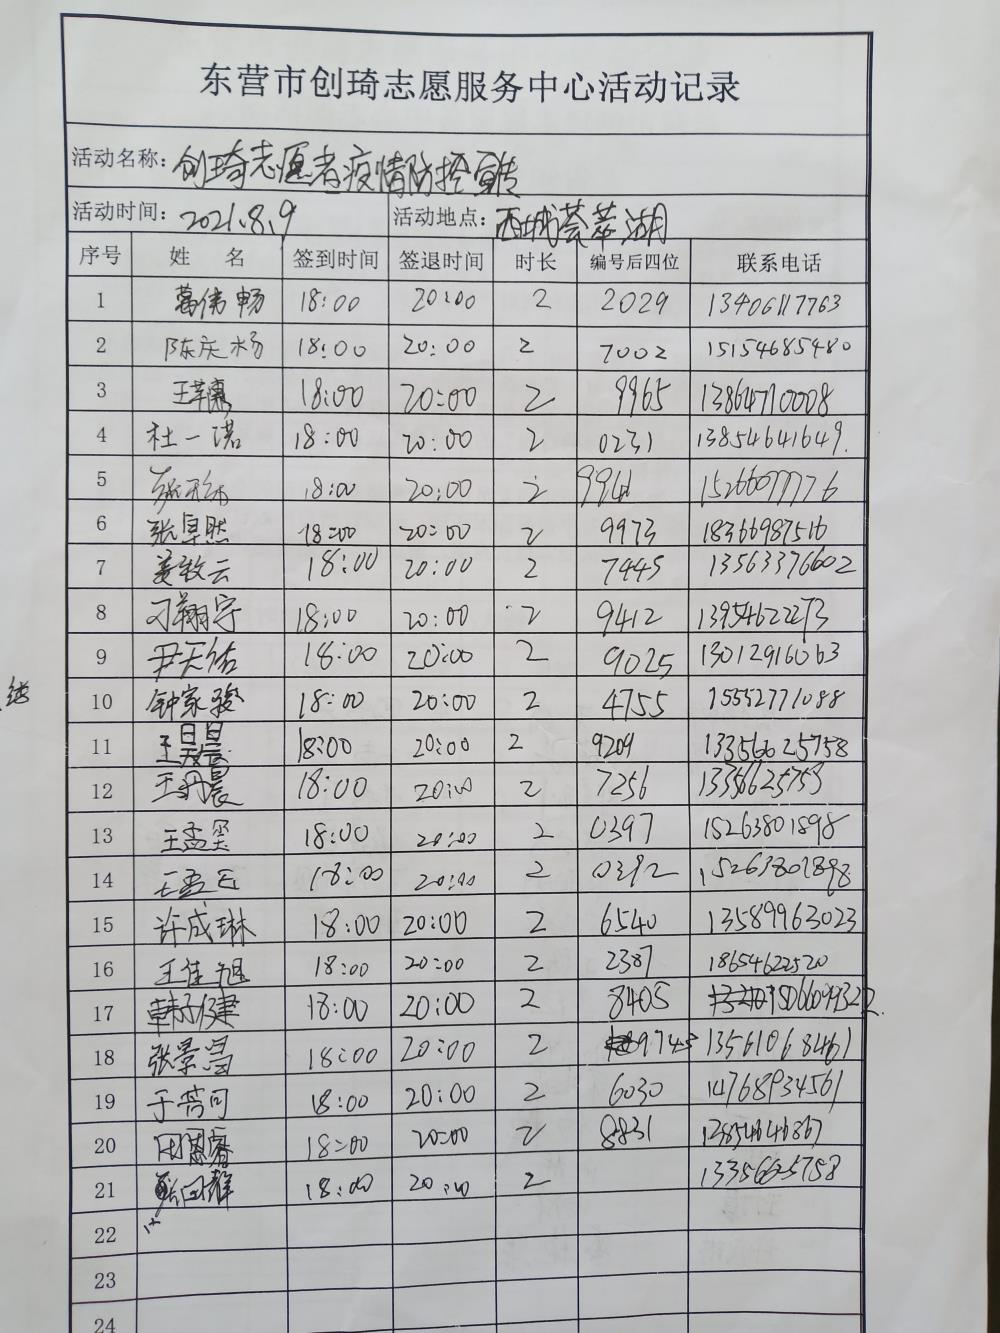 东营市创琦志愿服务中心活动记录
活动名称：创琦志愿者疫情防控宣传
活动时间：2021.8.9 活动地点：西城荟萃湖
序号 姓 名 签到时间 签退时间 时长 编号后四位 联系电话
1 葛伟畅 18:00 20:00 2 2029 13406117763
2 陈庆杨 18:00 20:00 2 7002 15154685480
3 18:00 20:00 2 9965 13864710008
4 杜一诺 18:00 20:00 2 0231 13854641649.
5 18:00 20:00 2 9941
6 张卓然 18:00 20:00 2 9973 18366987516
7 姜云 18:00 20:00 2 7445 13563376602
8 刁翔宇 18:00 20:00 2 9412 13954622273
9 尹天佑 18:00 20:00 2 9025 13012916063
10 钟家骏 18:00 20:00 2 4755 15552771088
11 18:00 20:00 2 9209 13356625758
12 王丹晨 18:00 20:00 2 7256 13356625758
13 王孟玺 18:00 20:00 2 0397 15263801898
14 王孟 18:00 20:00 2 0392 15263801898
15 许成琳 18:00 20:00 2 6540 13589963023
16 王佳旭 18:00 20:00 2 2387 18654622520
17 韩子健 18:00 20:00 2 8405
18 张景 18:00 20:00 2 9745 13561068461
19 于可 18:00 20:00 2 6030 14768934561
20 田 18:00 20:00 2 8831
21 18:00 20:00 2 13356625758
22
23
24